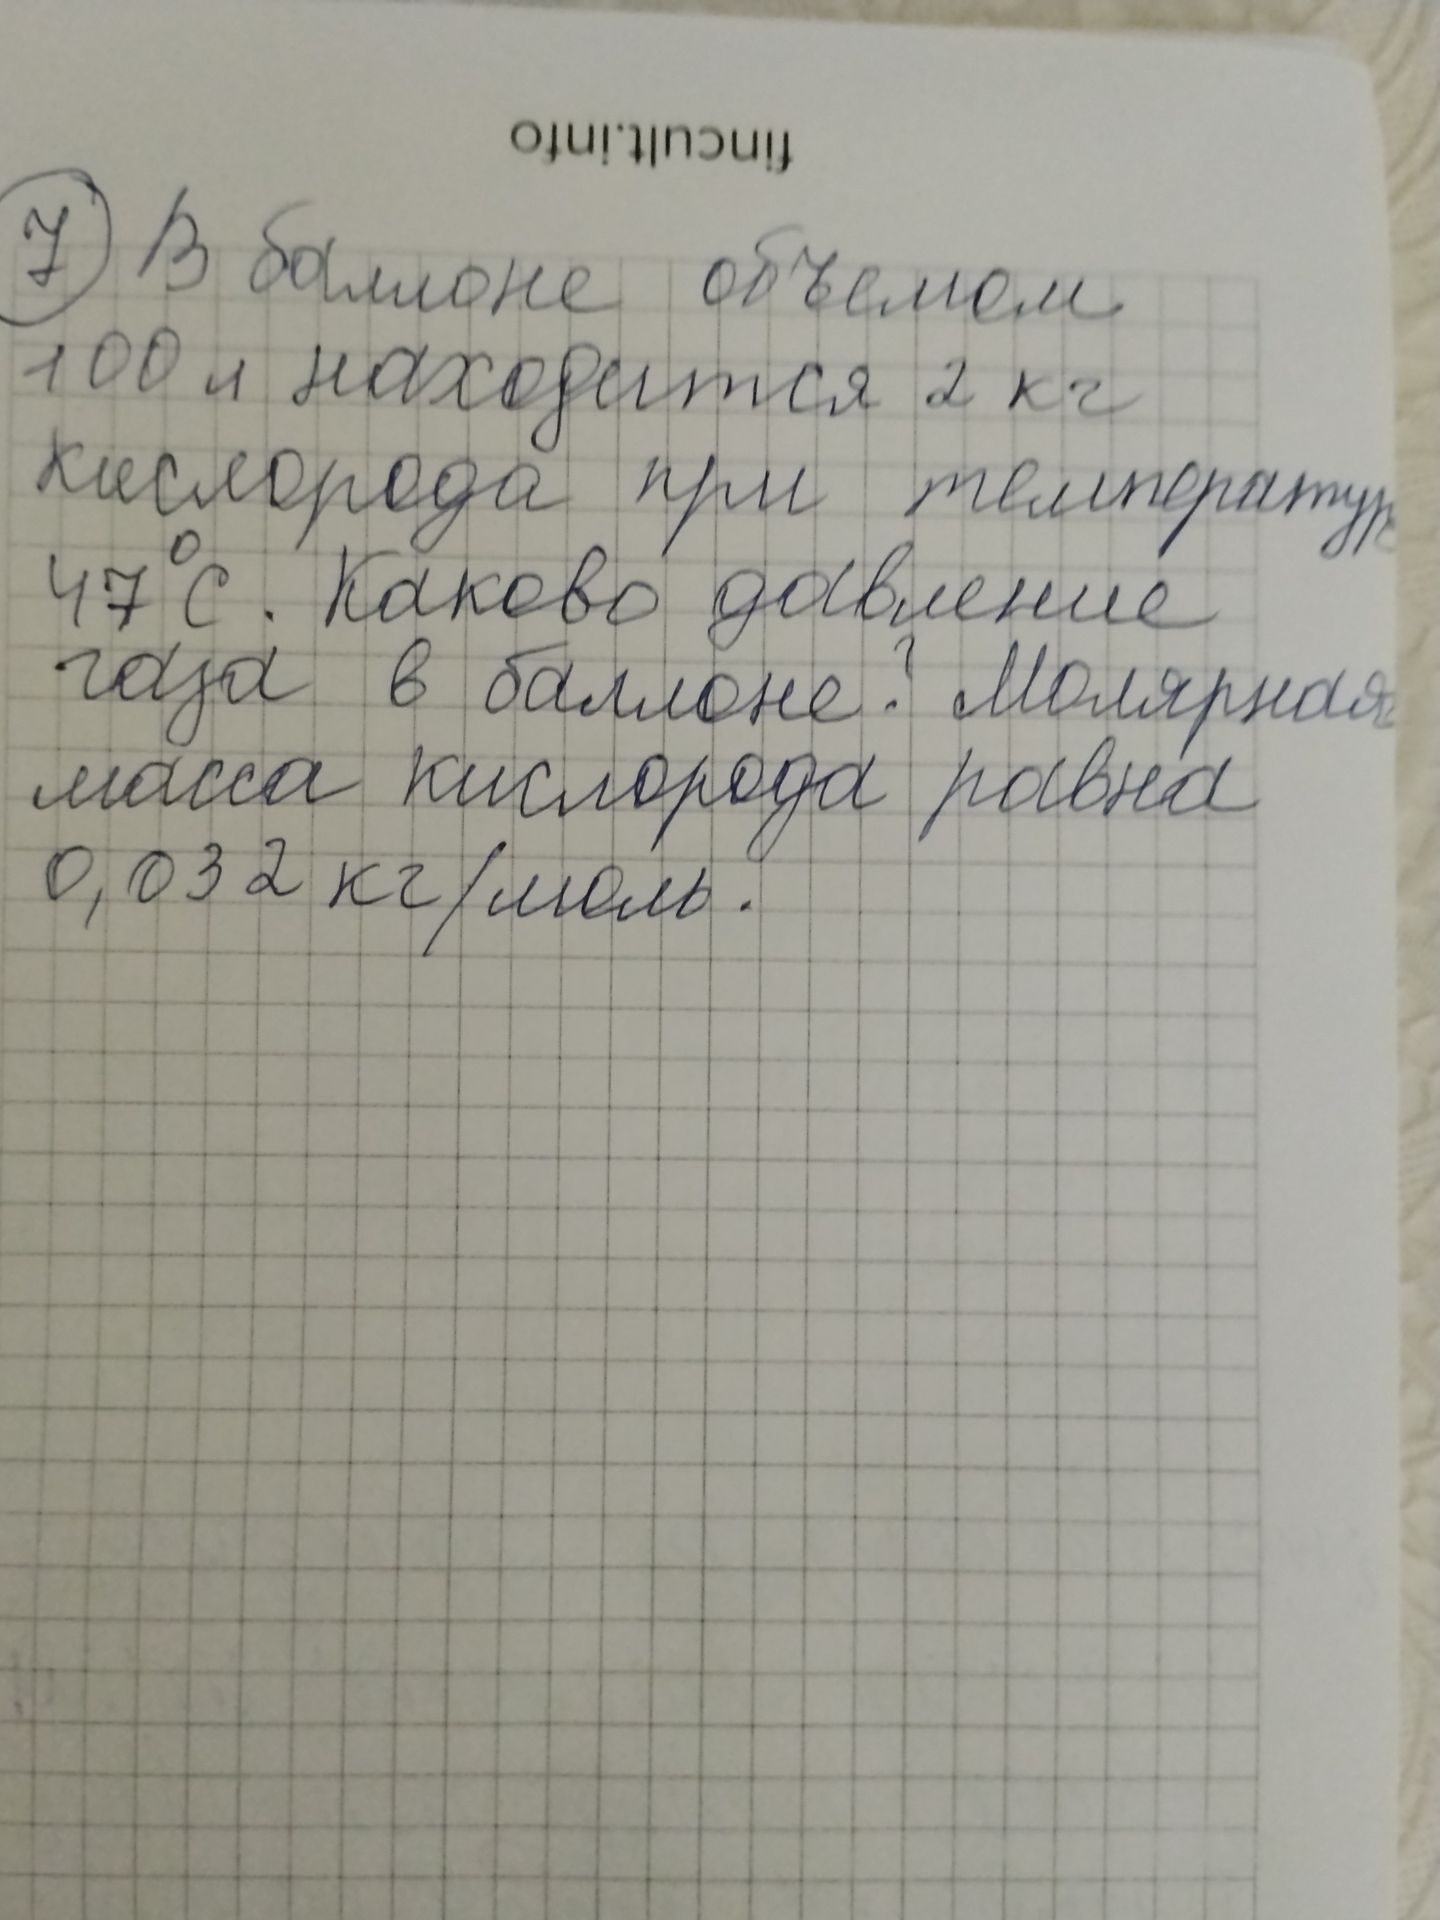 fincult.info
7 В баллоне объемом
100 л находится 2 кг
кислорода при температур
47°С. Каково давление
газа в баллоне? Молярная
масса кислорода равна
0,032 кг/моль.